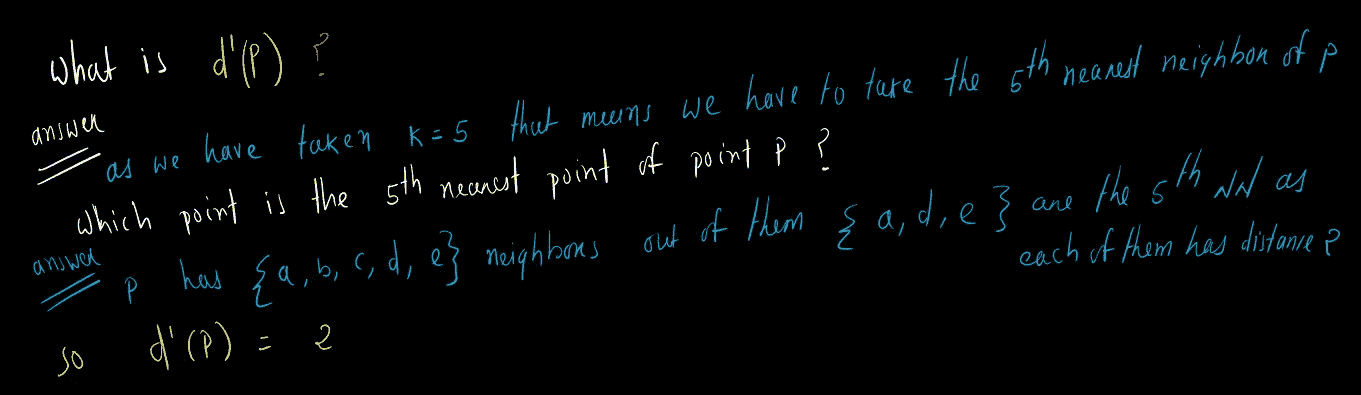 What is d'(P) ?
answer
as we have taken K = 5 that means we have to take the 5th nearest neighbor of P
Which point is the 5th nearest point of point P ?
answer
P has {a, b, c, d, e} neighbors out of them { a, d, e } are the 5th NN as
each of them has distance 2
so d'(P) = 2